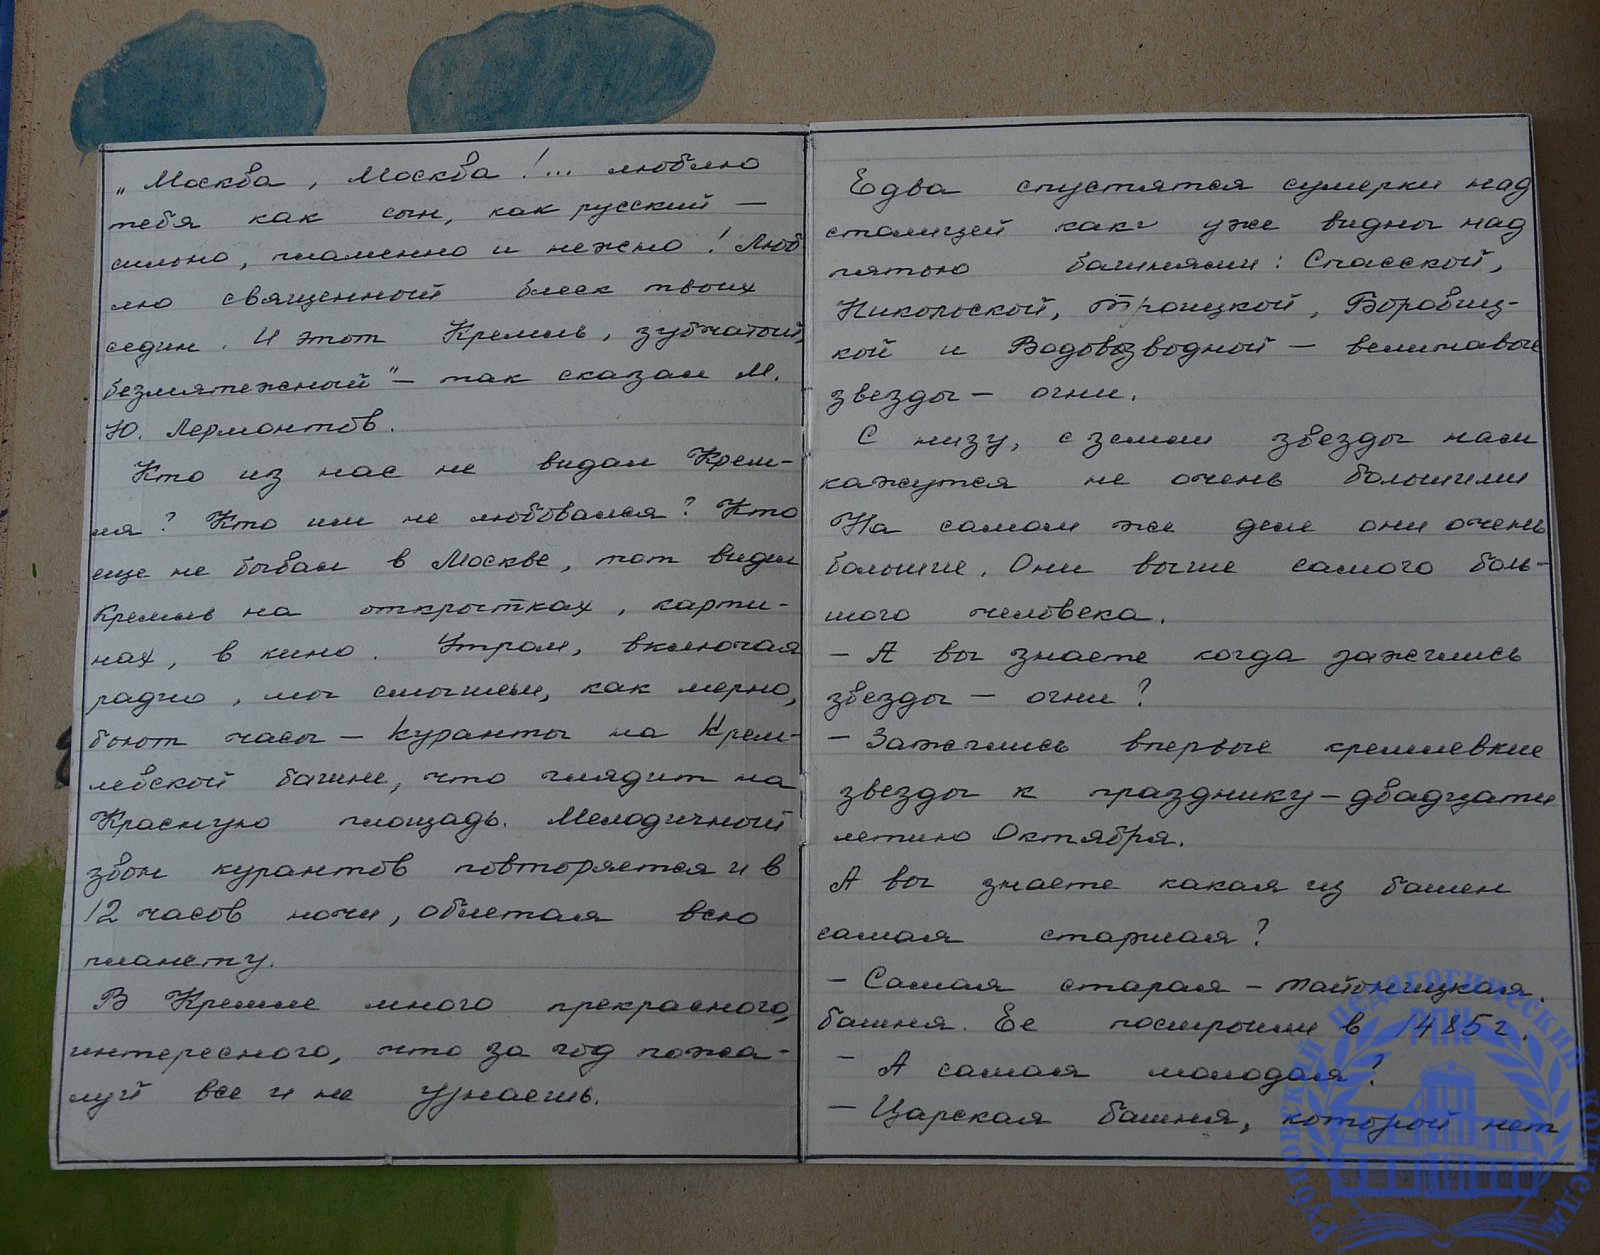 „Москва, Москва!... люблю
тебя как сын, как русский —
сильно, пламенно и нежно! Люб
лю священный блеск твоих
седин. И этот Кремль, зубчатый,
безмятежный" — так сказал М.
Ю. Лермонтов.
Кто из нас не видал Крем-
ля? Кто им не любовался? Кто
еще не бывал в Москве, тот видел
Кремль на открытках, карти-
нах, в кино. Утром, включая
радио, мы слышим, как мерно,
бьют часы — куранты на Крем-
левской башне, что глядит на
Красную площадь. Мелодичный
звон курантов повторяется и в
12 часов ночи, облетая всю
планету.
В Кремле много прекрасного,
интересного, что за год пожа-
луй все и не узнаешь.
Едва спустятся сумерки над
столицей как уже видны над
пятью башнями: Спасской,
Никольской, Троицкой, Боровиц-
кой и Водовзводной — величавые
звезды — огни.
С низу, с земли звезды нам
кажутся не очень большими
На самом же деле они очень
большие. Они выше самого боль-
шого человека.
— А вы знаете когда зажглись
звезды — огни?
— Зажглись впервые кремлевкие
звезды к празднику — двадцати
летию Октября.
А вы знаете какая из башен
самая старшая?
— Самая старая — тайоницкая
башня. Ее построили в 1485 г.
— А самая молодая?
— Царская башня, которой нет
Рубцовский педагогический колледж
РПК